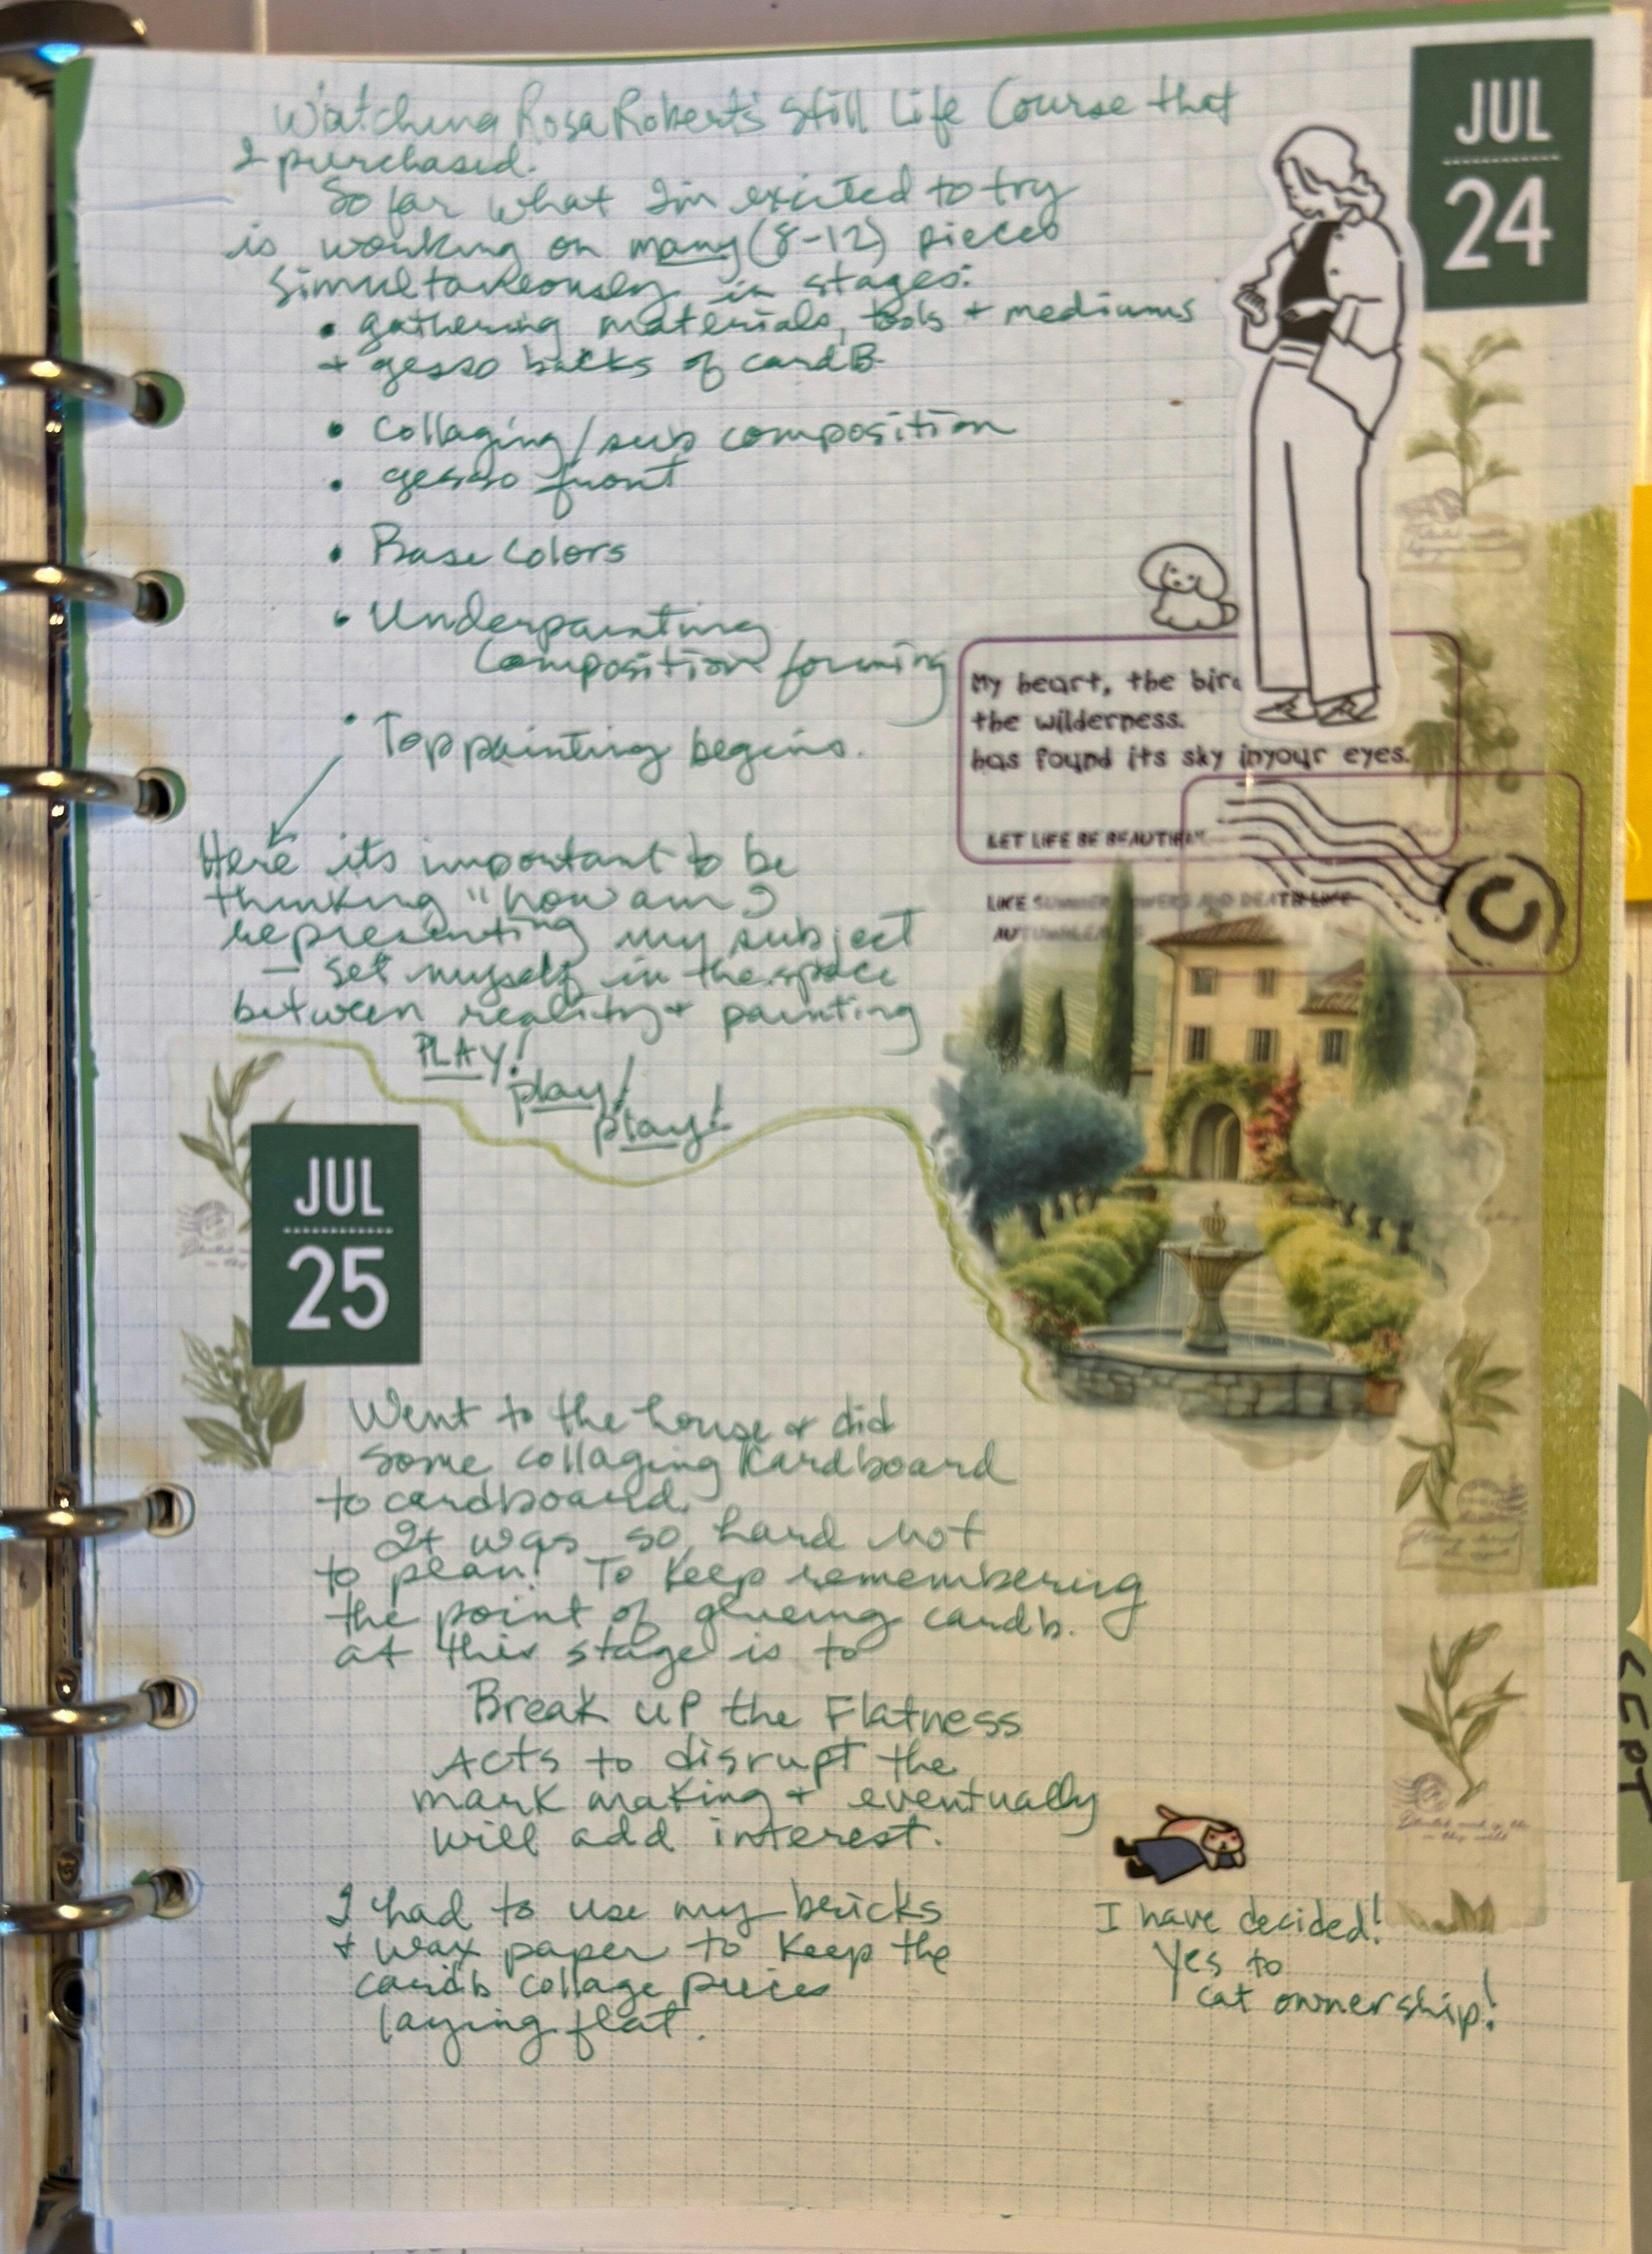 JUL
24
Watching Rosa Roberts' Still Life Course that
I purchased.
So far what I'm excited to try
is working on many (8-12) pieces
simultaneously in stages:
• gathering materials, tools + mediums
+ gesso backs of cardB.
• Collaging/sub composition
• gesso front
• Base Colors
• Underpainting
Composition forming
• Top painting begins.
Here its important to be
thinking "how am I
representing my subject
- set myself in the space
between reality + painting
PLAY!
play!
play!
My heart, the bird
the wilderness.
has found its sky inyour eyes.
LET LIFE BE BEAUTIFUL
LIKE SUMMER FLOWERS AND DEATH LIKE
AUTUMN LEAVES
JUL
25
Went to the house & did
some collaging Kardboard
to cardboard.
It was so hard not
to plan! To Keep remembering
the point of glueing cardb.
at this stage is to
Break up the Flatness
Acts to disrupt the
mark making + eventually
will add interest.
I had to use my bricks
+ wax paper to Keep the
cardb collage pieces
laying flat.
I have decided!
Yes to
cat ownership!
SEPT